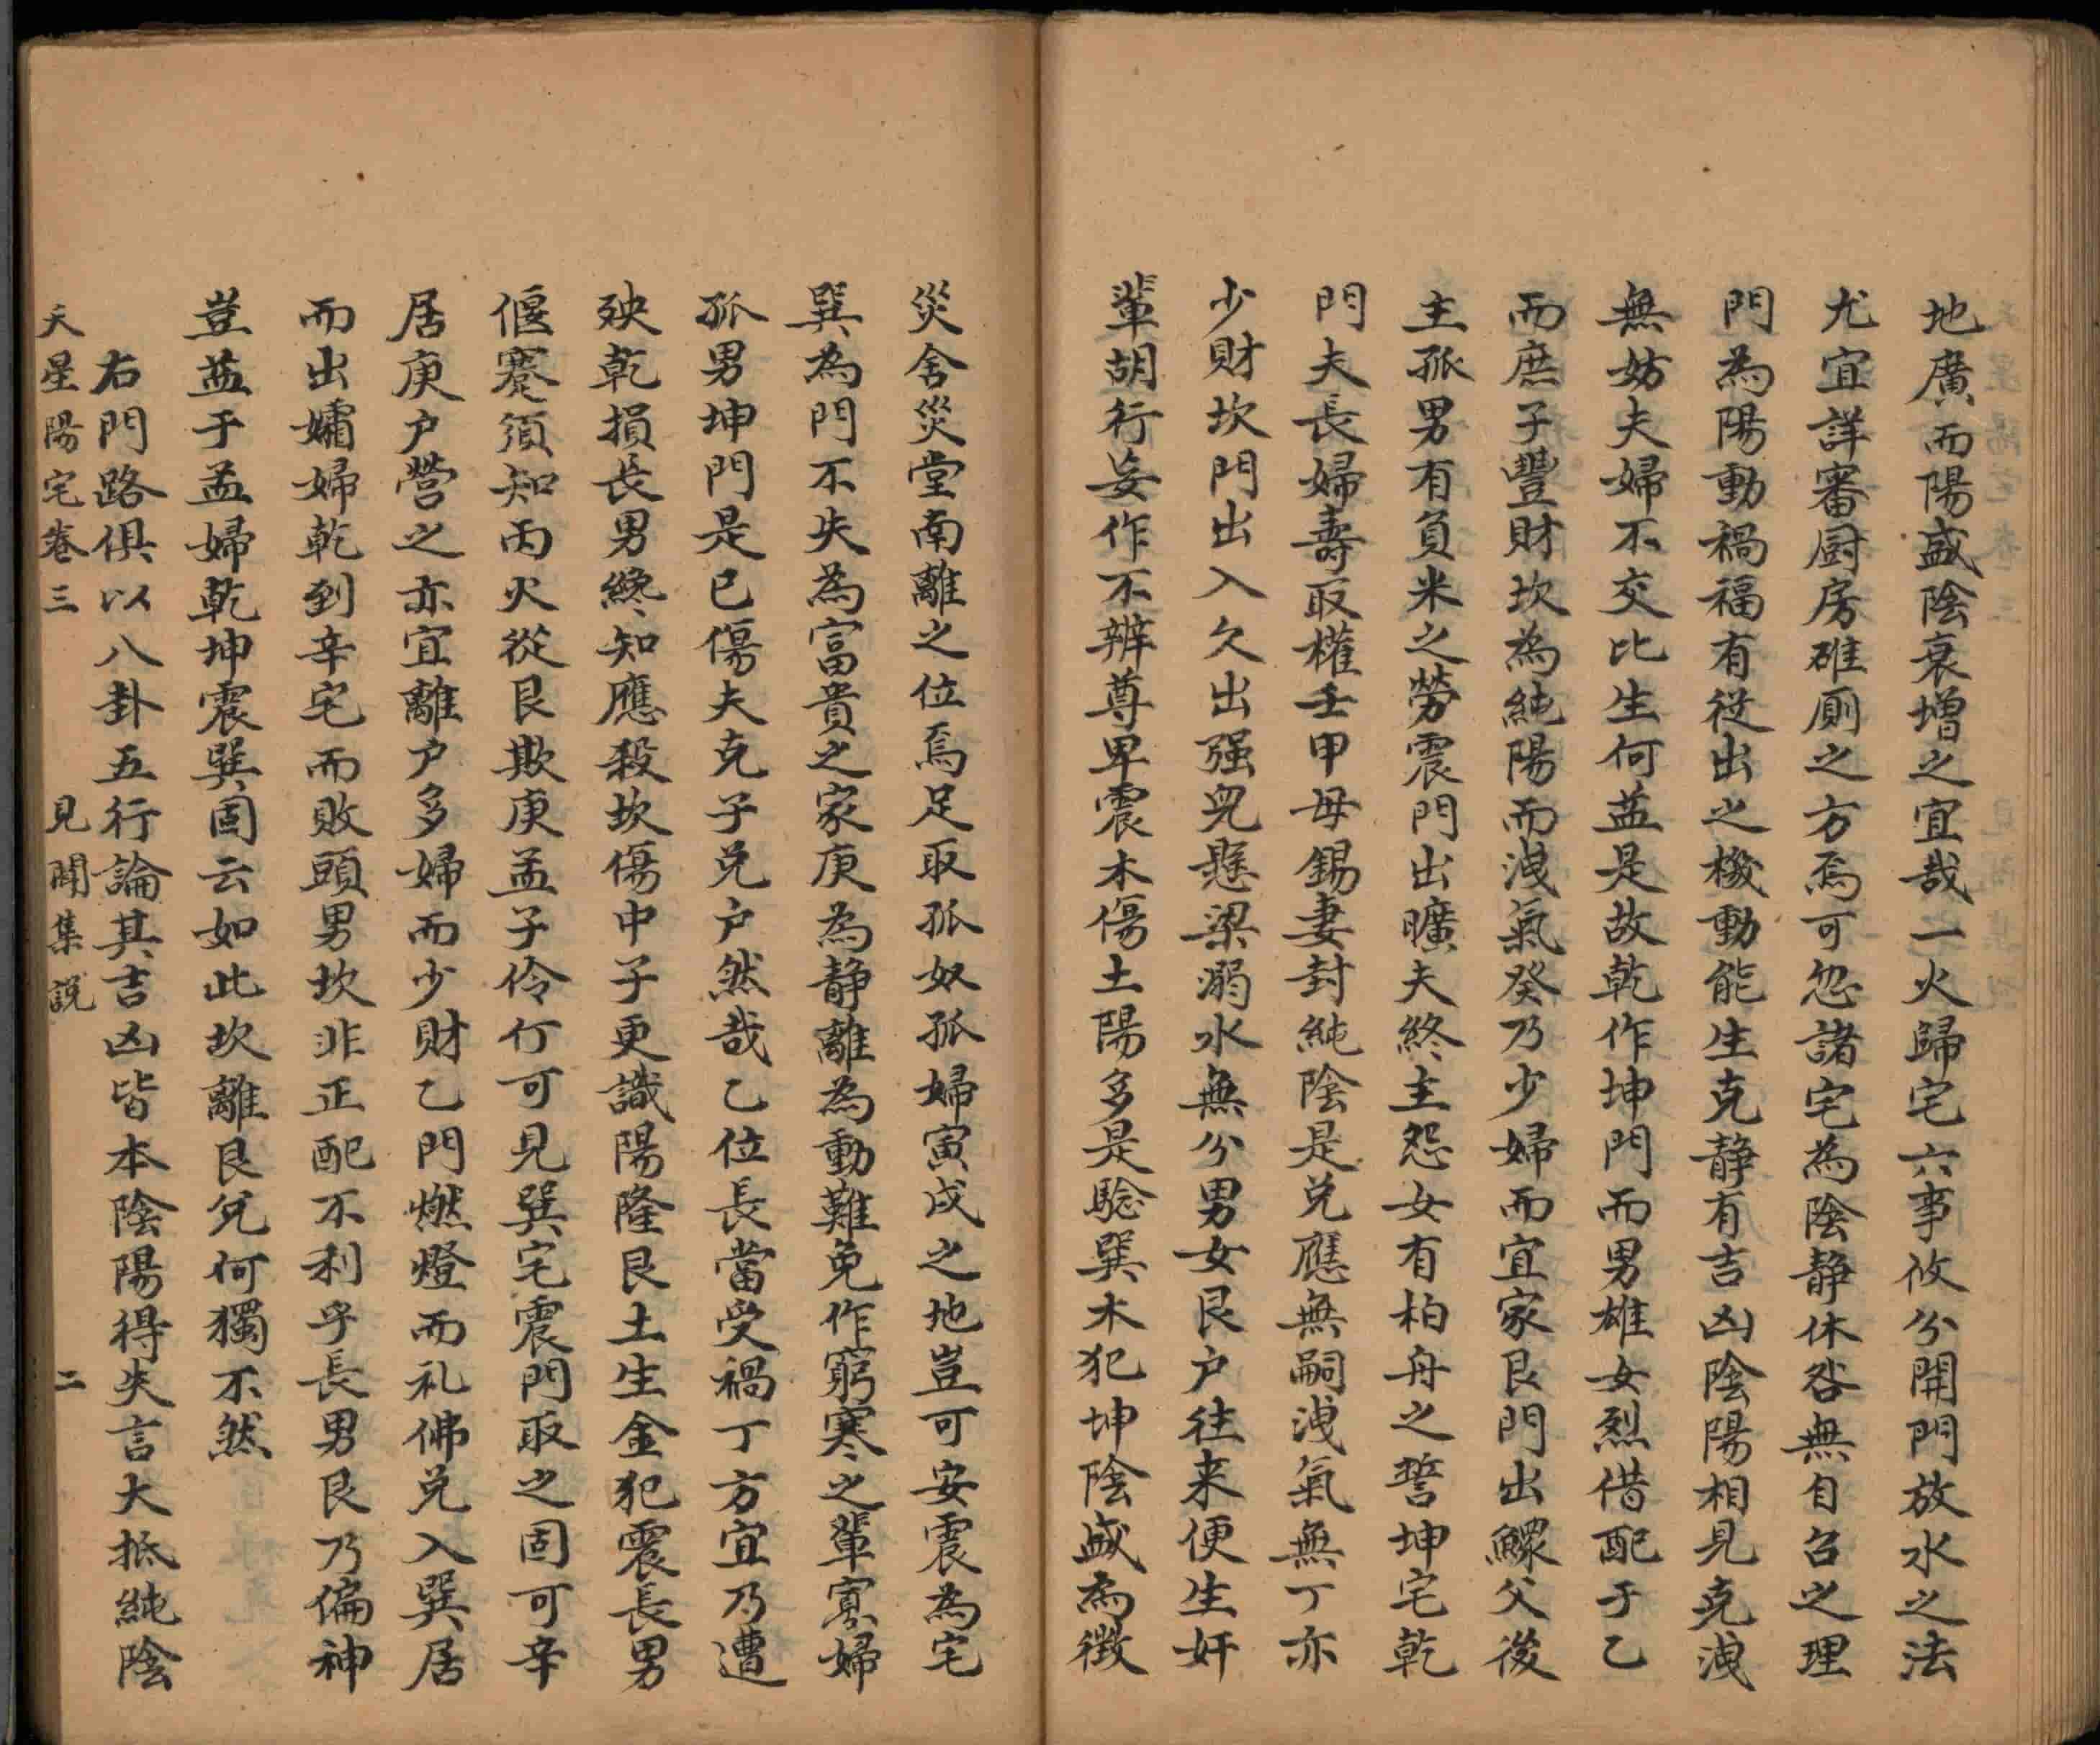 地廣而陽盛陰衰增之宜哉一火歸宅六事攸分開門放水之法
尤宜詳審厨房碓厠之方焉可忽諸宅為陰静休咎無自召之理
門為陽動禍福有從出之機動能生克静有吉凶陰陽相見克洩
無妨夫婦不交比生何益是故乾作坤門而男雄女烈借配于乙
而庶子豐財坎為純陽而洩氣癸乃少婦而宜家艮門出鰥父後
主孤男有負米之勞震門出曠夫終主怨女有柏舟之誓坤宅乾
門夫長婦壽取權壬甲母錫妻封純陰是兌應無嗣洩氣無丁亦
少財坎門出入久出强兇懸梁溺水無分男女艮户往来便生奸
輩胡行妄作不辨尊卑震木傷土陽多是騐巽木犯坤陰盛為徵
災舍災堂南離之位焉足取孤奴孤婦寅戌之地豈可安震為宅
巽為門不失為富貴之家庚為静離為動難免作窮寒之輩寡婦
孤男坤門是已傷夫克子兌户然哉乙位長當受禍丁方宜乃遭
殃乾損長男纔知應殺坎傷中子更識陽隆艮土生金犯震長男
偃蹇須知丙火從艮欺庚孟子伶仃可見巽宅震門取之固可辛
居庚户營之亦宜離户多婦而少財乙門燃燈而礼佛兌入巽居
而出孀婦乾到辛宅而敗頭男坎非正配不利乎長男艮乃偏神
豈益于孟婦乾坤震巽固云如此坎離艮兌何獨不然
右門路俱以八卦五行論其吉凶皆本陰陽得失言大抵純陰
天星陽宅卷三 見聞集説 二